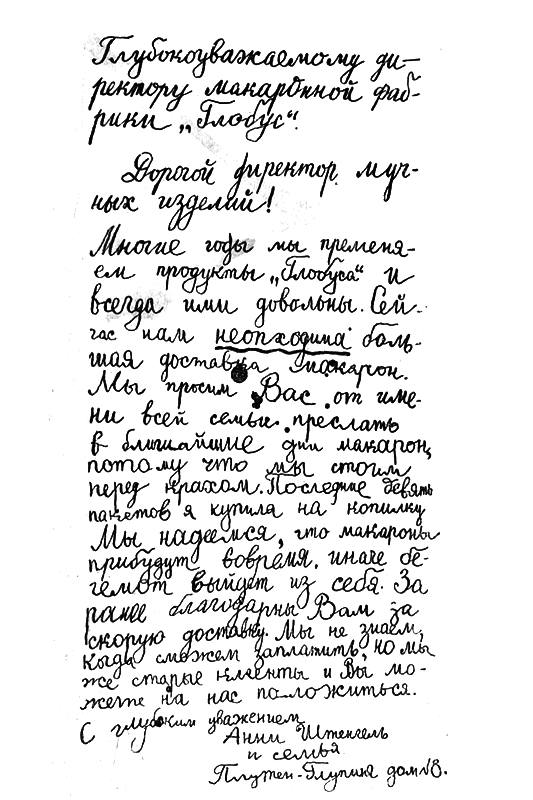 Глубокоуважаемому ди-
ректору макаронной фаб-
рики „Глобус".
Дорогой директор муч-
ных изделий!
Многие годы мы пременя-
ем продукты „Глобуса" и
всегда ими довольны. Сей-
час нам неопходима боль-
шая доставка макарон.
Мы просим Вас от име-
ни всей семьи преслать
в ближайшие дни макарон,
потому что мы стоим
перед крахом. Последние девять
пакетов я купила на копилку
Мы надеемся, что макароны
прибудут вовремя, иначе бе-
гемот выйдет из себя. За
ранее благодарны Вам за
скорую доставку. Мы не знаем,
когда сможем заплатить, но мы
же старые клиенты и Вы мо-
жете на нас положиться.
С глубоким уважением
Анни Штенгель
и семья
дом №8.